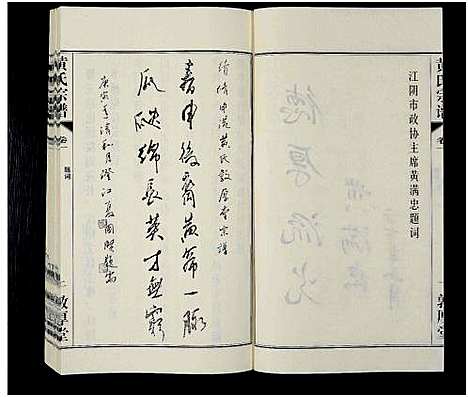 黄氏宗谱
卷一
敦厚堂
江阴市政协主席黄满忠题词
德厚流光
黄满忠
续修申港黄氏敦厚堂宗谱
春申后裔黄帝一脉
瓜瓞绵长英才无穷
庚寅年清和月澄江
黄氏宗谱
卷一
题词
敦厚堂